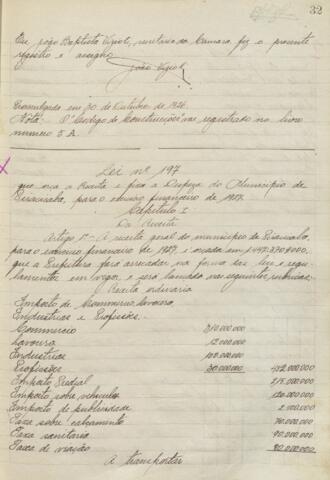 32
Eu João Baptista Vizioli, secretario da Camara, fiz o presente
registro e assigno
João Vizioli
Promulgada em 30 de Outubro de 1926.
Nota: O "Codigo de Construcções" vae registrado no livro
numero 5 A.
Lei nº 197
que orça a Receita e fixa a Despeza do Municipio de
Piracicaba, para o exercicio financeiro de 1927.
Capitulo I
Da Receita
Artigo 1º - A receita geral do municipio de Piracicaba,
para o exercicio financeiro de 1927, é orçada em
que a Prefeitura fará arrecadar na forma das leis e regu-
lamentos em vigor, e será lançada nas seguintes rubricas:
Receita ordinaria
Imposto de Commercio, Lavoura
Industrias e Profissões:
Commercio 210.000.000
Lavoura 12.000.000
Industrias
Profissões 30.000.000
Imposto Predial
Imposto sobre vehiculos 120.000.000
Imposto de publicidade 2.000.000
Taxa sobre calçamento
Taxa sanitaria 90.000.000
Taxa de viação 80.000.000
A transportar